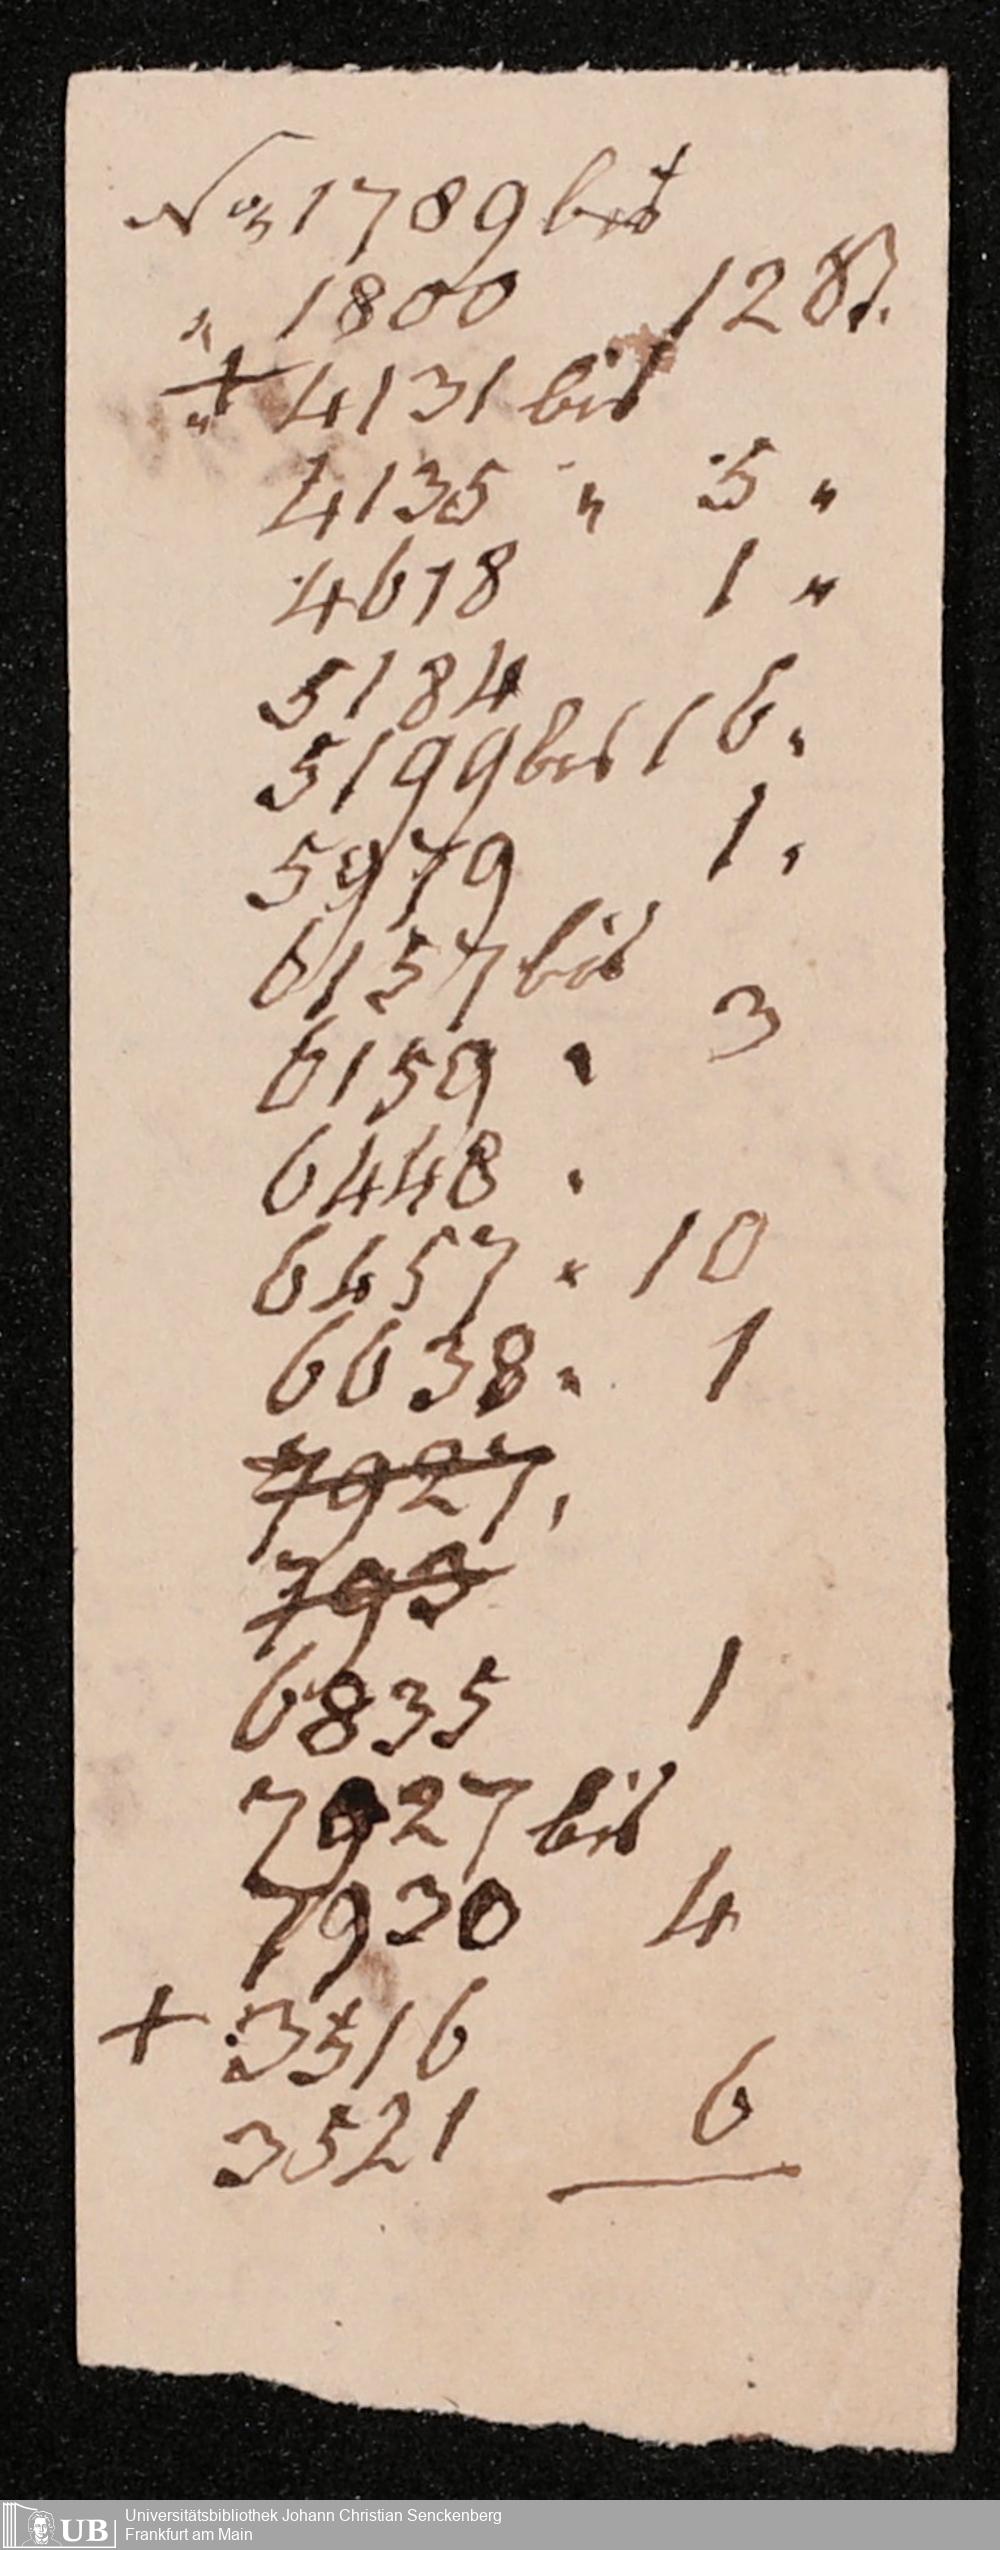 No 1789 bis
" 1800 12 B.
+ " 4131 bis
4135 " 5 "
4618 1 "
5184
5199 bis 16 "
5979 1 "
6157 bis
6159 " 3
6448 "
6457 " 10
6638 " 1
7927,
793
6835 1
7927 bis
7930 4
+ 3516
3521 6
UB Universitätsbibliothek Johann Christian Senckenberg
Frankfurt am Main